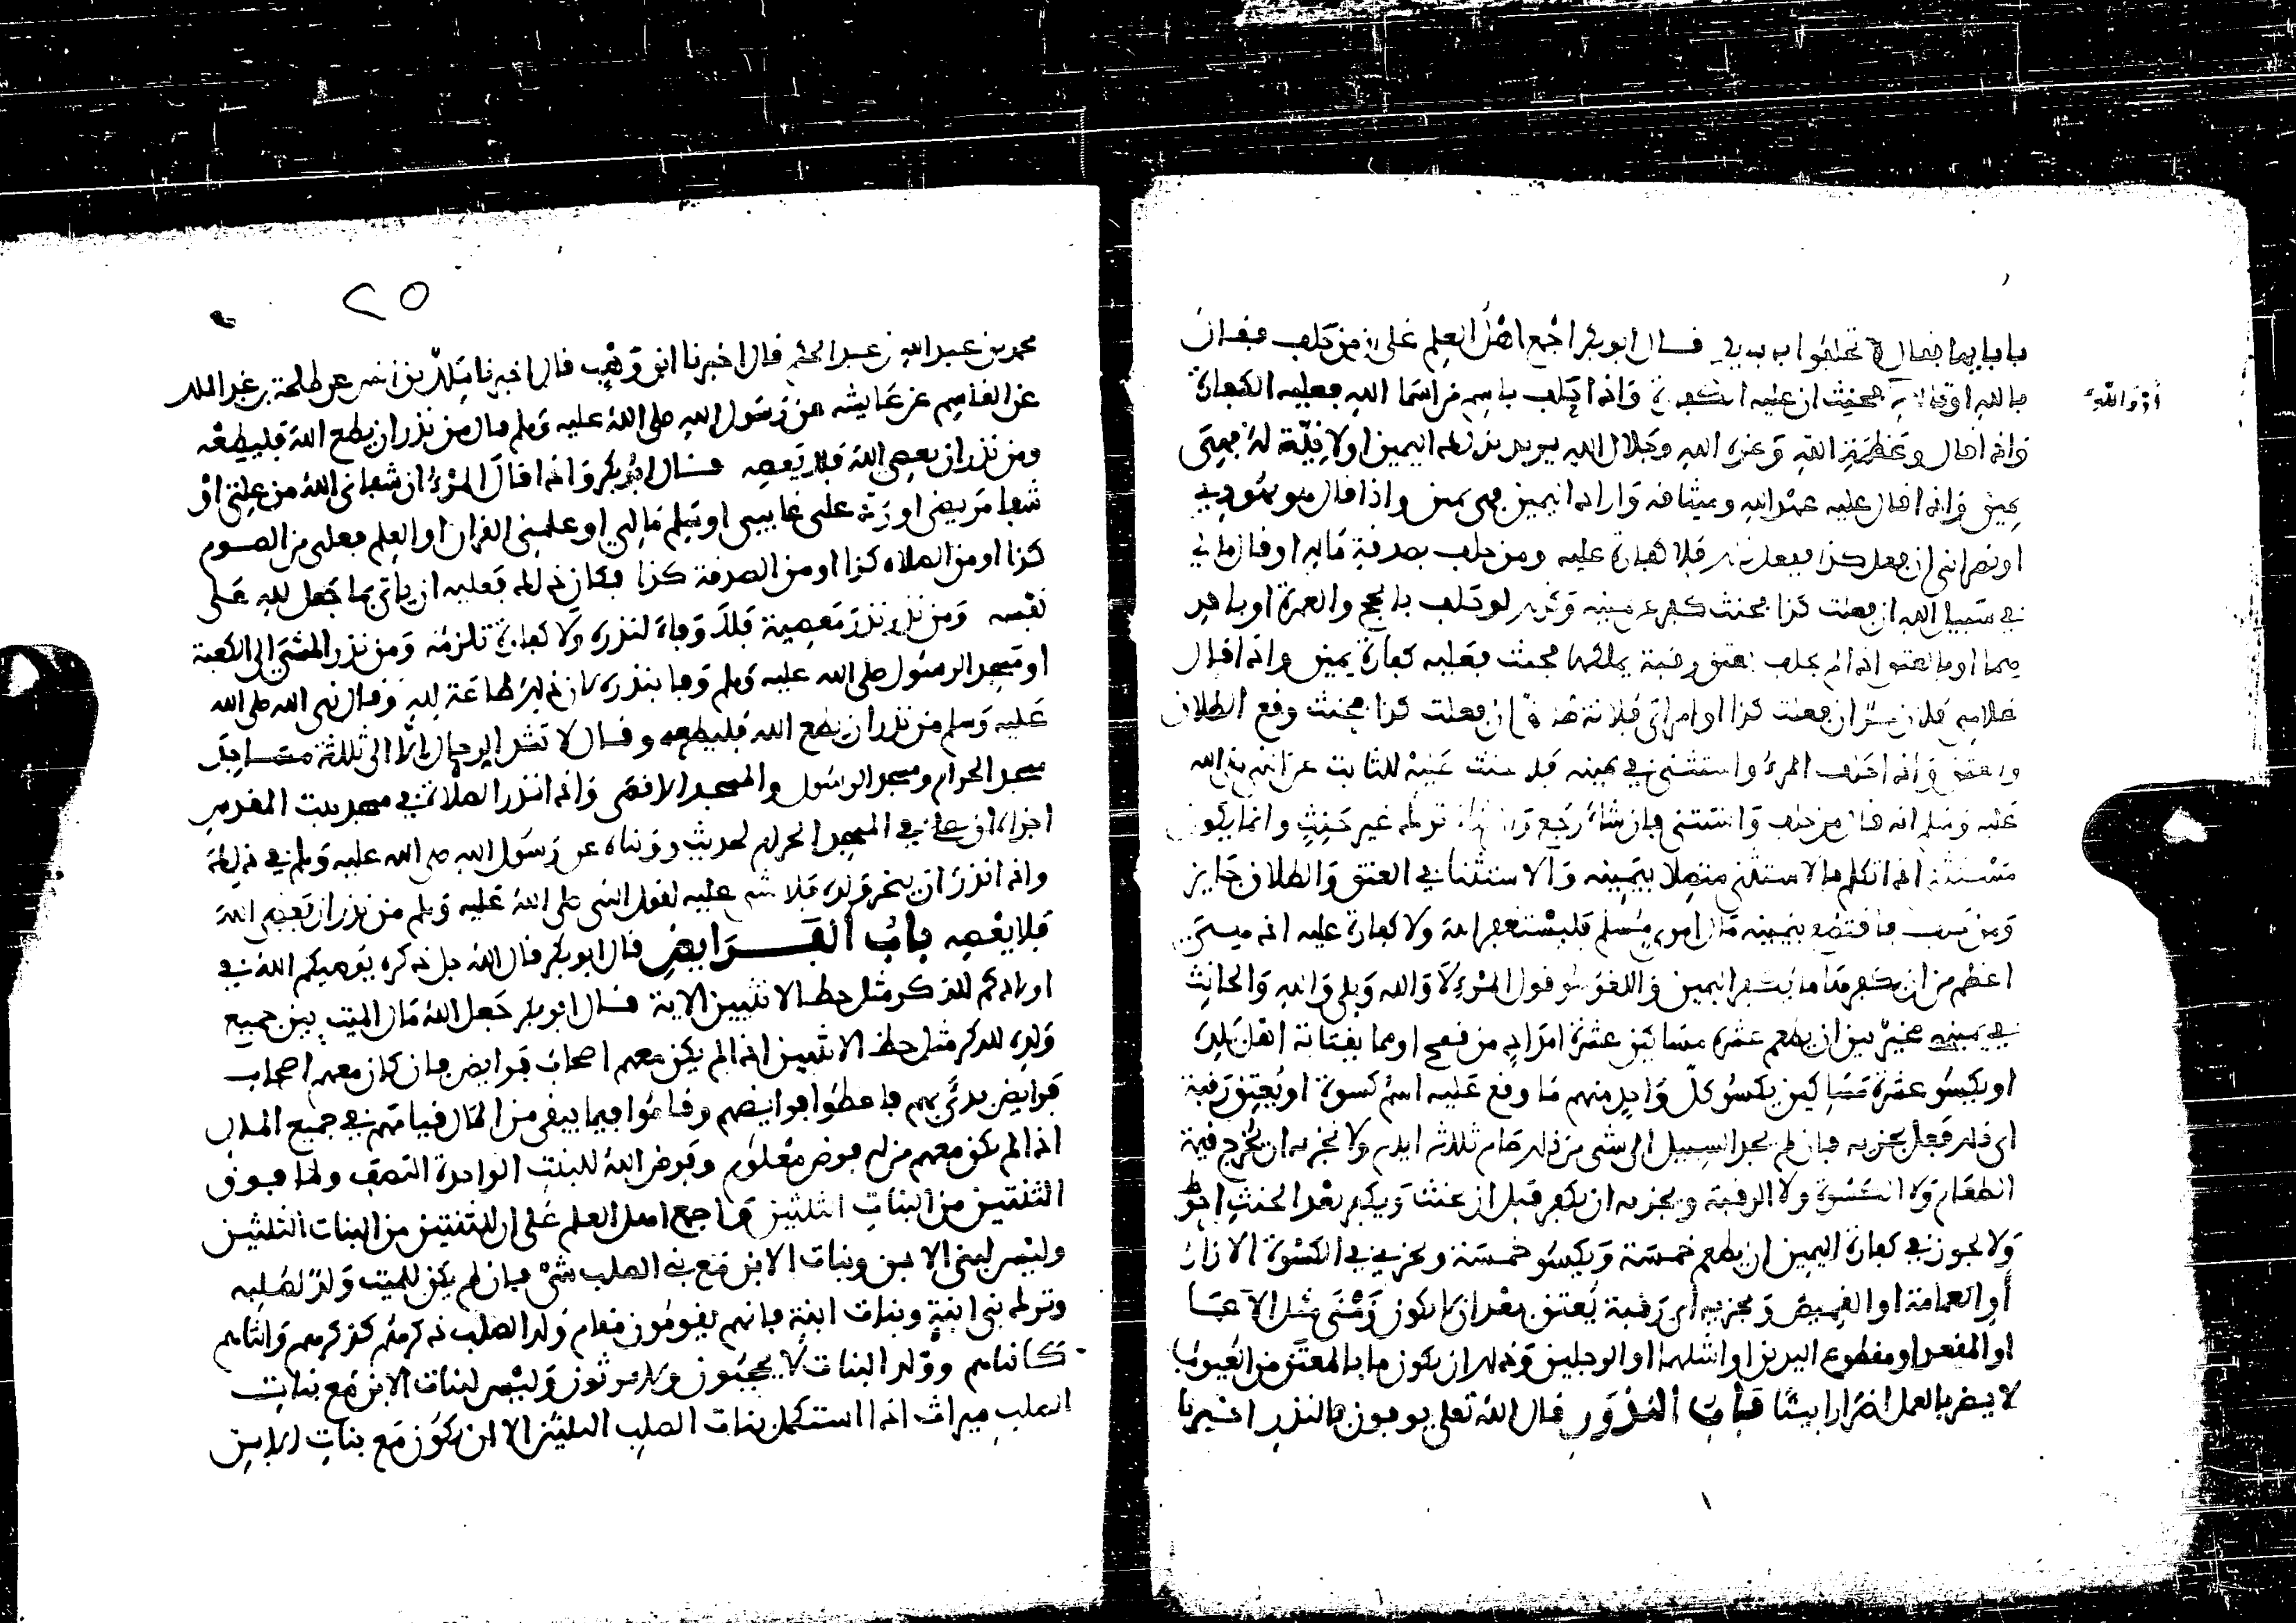 بابايها فقال لا تحلفوا بابايكم قال ابو بكر اجمع اهل العلم على ان من حلف فقال
بالله او تالله فحنث ان عليه الكفارة واذا حلف باسم من اسما الله فعليه الكفارة
او والله
واذا قال وعظمة الله وعزة الله وجلال الله يريد بذلك اليمين اولا نية له فهي
يمين واذا قال عليه عهد الله وميثاقه واراد اليمين فهي يمين واذا قال هو يهودي
او نصراني ان فعل كذا ففعل فلا كفارة عليه ومن حلف بصدقة ماله او قال مالي
في سبيل الله ان فعلت كذا فحنث كفر عن يمينه وكذلك لو حلف بالحج والعمرة او باحد
هما او بالعتق اذا لم يحلف بعتق رقبة يملكها فحنث فعليه كفارة يمين واذا قال
غلامي فلان حر ان فعلت كذا او امراتي فلانة طالق ان فعلت كذا فحنث وقع الطلاق
والعتق واذا حلف المرء واستثنى في يمينه فلا حنث عليه للثابت عن النبي صلى الله
عليه وسلم انه قال من حلف واستثنى فان شاء رجع وان شاء ترك غير حنث وانما يكون
مستثنيا اذا تكلم بالاستثنا متصلا بيمينه والاستثنا في العتق والطلاق جايز
ومن حلف فاقتطع بيمينه مال امرء مسلم فليستغفر الله ولا كفارة عليه اذ هي
اعظم من ان يكفرها ما يكفر اليمين واللغو هو قول المرء لا والله وبلى والله والحانث
في يمينه مخير بين ان يطعم عشرة مساكين عشرة امداد من قمح او مما يقتاته اهل بلده
او يكسو عشرة مساكين يكسو كل واحد منهم ما وقع عليه اسم كسوة او يعتق رقبة
اي ذلك فعل يجزيه فان لم يجد السبيل الى شي من ذلك صام ثلثة ايام ولا يجزيه ان يخرج قيمة
الطعام ولا الكسوة ولا الرقبة ويجزيه ان يكفر قبل ان يحنث ويكفر بعد الحنث احوط
ولا يجوز في كفارة اليمين ان يطعم خمسة ويكسو خمسة ويجزي في الكسوة الازار
او العمامة او القميص ويجزيه اي رقبة يعتق بعد ان لا يكون زمنى مثل الاعما
او المقعد او مقطوع اليدين او اشلهما او الرجلين وذلك ان يكون ما بالمعتق من العيوب
لا يضر بالعمل اضرارا بينا باب النذور قال الله تعلى يوفون بالنذر اخبرنا
٢٥
محمد بن عبد الله بن عبد الحكم قال اخبرنا ابن وهب قال اخبرنا ملك بن انس عن طلحة بن عبد الملك
عن القاسم عن عايشه عن رسول الله صلى الله عليه وسلم قال من نذر ان يطع الله فليطعه
ومن نذر ان يعصي الله فلا يعصه قال ابو بكر واذا قال المرء ان شفاني الله من علتي او
شفا مريضي او رد علي غايبي او سلم مالي او علمني القران او العلم فعلي من الصوم
كذا او من الصلاه كذا او من الصدقة كذا فكان ذلك فعليه ان ياتي بما جعل لله على
نفسه ومن نذر نذر معصية فلا وفاء لنذره ولا كفارة تلزمه ومن نذر المشي الى الكعبة
او مسجد الرسول صلى الله عليه وسلم وفا بنذره لان ذلك طاعة لله وقال نبي الله صلى الله
عليه وسلم من نذر ان يطع الله فليطعه وقال لا تشد الرحال الا الى ثلثة مساجد
مسجد الحرام ومسجد الرسول والمسجد الاقصى واذا نذر الصلاة في مسجد بيت المقدس
اجزاه ان صلى في المسجد الحرام لحديث رويناه عن رسول الله صلى الله عليه وسلم في ذلك
واذا نذر ان ينحر ولده فلا شي عليه لقول النبي صلى الله عليه وسلم من نذر ان يعصي الله
فلا يعصه باب الفرايض قال ابو بكر قال الله جل ذكره يوصيكم الله في
اولادكم للذكر مثل حظ الانثيين الاية قال ابو بكر جعل الله مال الميت بين جميع
ولده للذكر مثل حظ الانثيين اذا لم يكن معهم اصحاب فرايض فان كان معهم اصحاب
فرايض بدئ بهم فاعطوا فرايضهم وقاموا فيما يبقى من المال قيامهم في جميع المال
اذا لم يكن معهم من له فرض معلوم وفرض الله للبنت الواحدة النصف ولما فوق
الثنتين من البنات الثلثين واجمع اهل العلم على ان للثنتين من البنات الثلثين
وليس لبني الابن وبنات الابن مع بني الصلب شئ فان لم يكن للميت ولد لصلبه
وترك بني ابنه وبنات ابنه فانهم يقومون مقام ولد الصلب ذكرهم كذكرهم واناثهم
كاناثهم وولد البنات لا يحجبون ولا يرثون وليس لبنات الابن مع بنات
الصلب ميراث اذا استكمل بنات الصلب الثلثين الا ان يكون مع بنات الابن